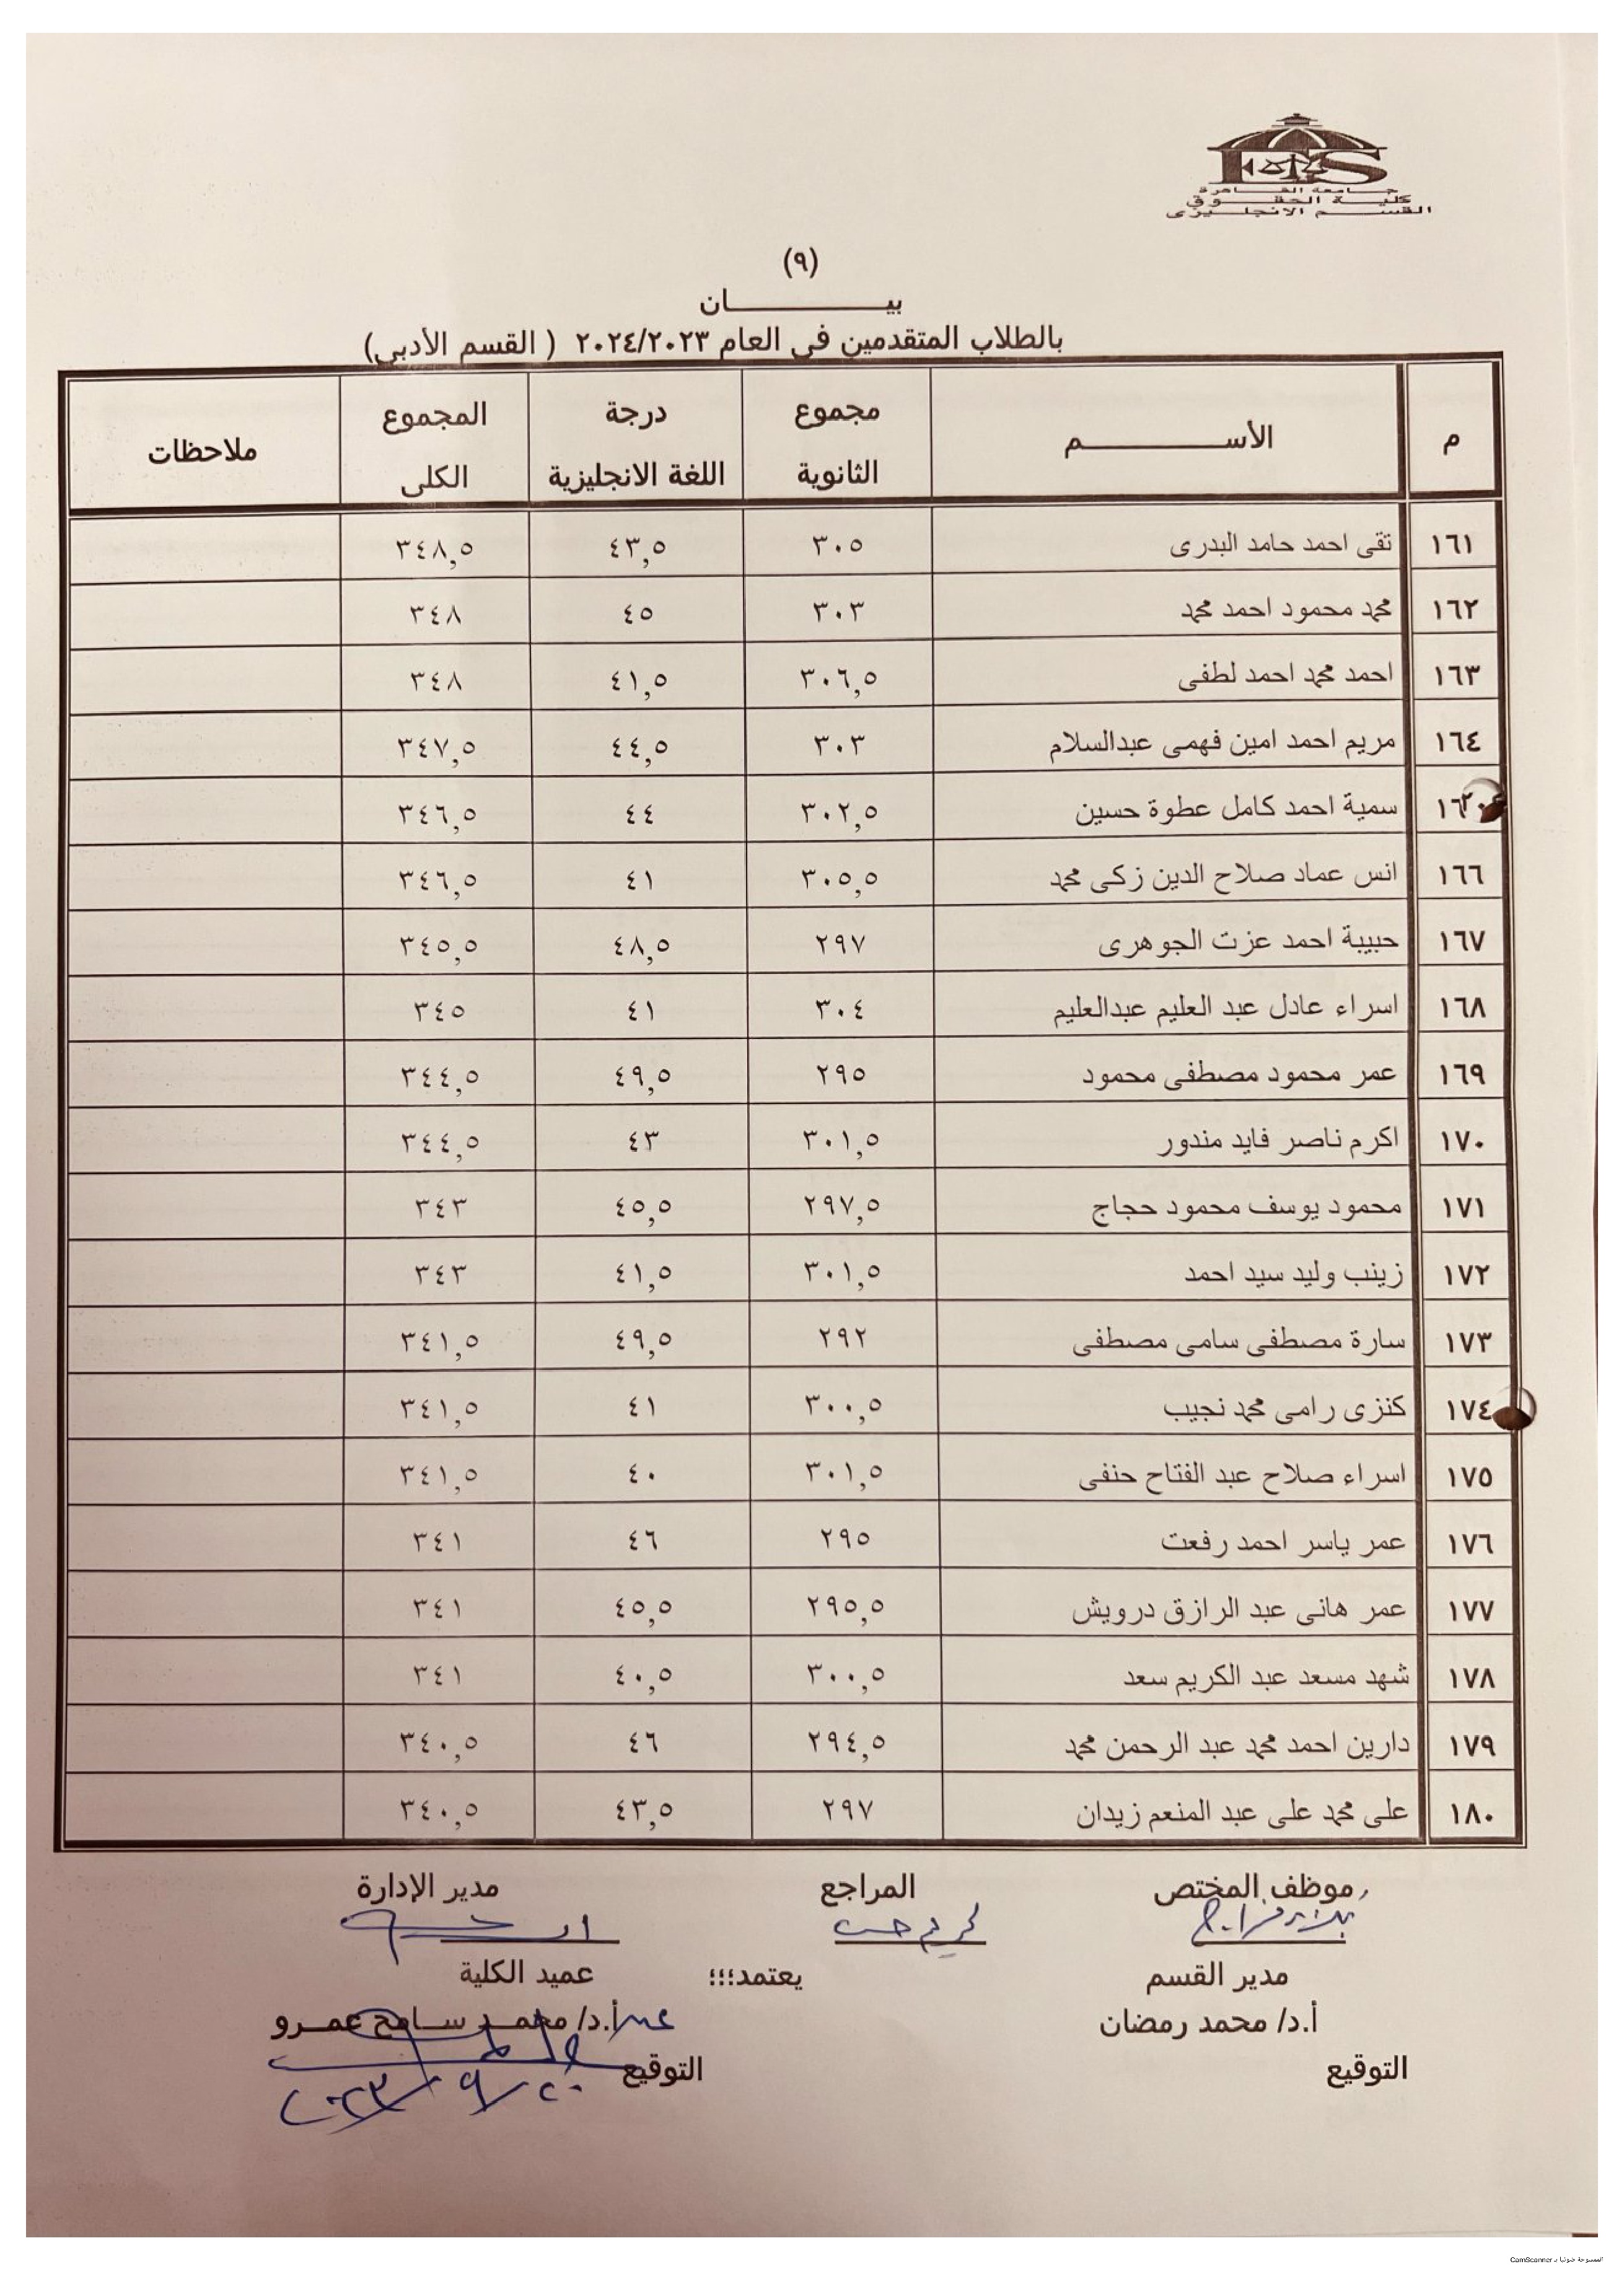 جامعة القاهرة
كلية الحقوق
القسم الانجليزى
(٩)
بيـــــــــان
بالطلاب المتقدمين فى العام ٢٠٢٤/٢٠٢٣ ( القسم الأدبى)
م الأســـــــــم مجموع الثانوية درجة اللغة الانجليزية المجموع الكلى ملاحظات
١٦١ تقى احمد حامد البدرى ٣٠٥ ٤٣,٥ ٣٤٨,٥
١٦٢ محمد محمود احمد محمد ٣٠٣ ٤٥ ٣٤٨
١٦٣ احمد محمد احمد لطفى ٣٠٦,٥ ٤١,٥ ٣٤٨
١٦٤ مريم احمد امين فهمى عبدالسلام ٣٠٣ ٤٤,٥ ٣٤٧,٥
سمية احمد كامل عطوة حسين ٣٠٢,٥ ٤٤ ٣٤٦,٥
١٦٦ انس عماد صلاح الدين زكى محمد ٣٠٥,٥ ٤١ ٣٤٦,٥
١٦٧ حبيبة احمد عزت الجوهرى ٢٩٧ ٤٨,٥ ٣٤٥,٥
١٦٨ اسراء عادل عبد العليم عبدالعليم ٣٠٤ ٤١ ٣٤٥
١٦٩ عمر محمود مصطفى محمود ٢٩٥ ٤٩,٥ ٣٤٤,٥
١٧٠ اكرم ناصر فايد مندور ٣٠١,٥ ٤٣ ٣٤٤,٥
١٧١ محمود يوسف محمود حجاج ٢٩٧,٥ ٤٥,٥ ٣٤٣
١٧٢ زينب وليد سيد احمد ٣٠١,٥ ٤١,٥ ٣٤٣
١٧٣ سارة مصطفى سامى مصطفى ٢٩٢ ٤٩,٥ ٣٤١,٥
١٧٤ كنزى رامى محمد نجيب ٣٠٠,٥ ٤١ ٣٤١,٥
١٧٥ اسراء صلاح عبد الفتاح حنفى ٣٠١,٥ ٤٠ ٣٤١,٥
١٧٦ عمر ياسر احمد رفعت ٢٩٥ ٤٦ ٣٤١
١٧٧ عمر هانى عبد الرازق درويش ٢٩٥,٥ ٤٥,٥ ٣٤١
١٧٨ شهد مسعد عبد الكريم سعد ٣٠٠,٥ ٤٠,٥ ٣٤١
١٧٩ دارين احمد محمد عبد الرحمن محمد ٢٩٤,٥ ٤٦ ٣٤٠,٥
١٨٠ على محمد على عبد المنعم زيدان ٢٩٧ ٤٣,٥ ٣٤٠,٥
موظف المختص المراجع مدير الإدارة
مدير القسم يعتمد؛؛؛ عميد الكلية
أ.د/ محمد رمضان أ.د/ محمـد سـامح عمـرو
التوقيع التوقيع
٢٠٢٣/٩/٢٠
الممسوحة ضوئيا بـ CamScanner